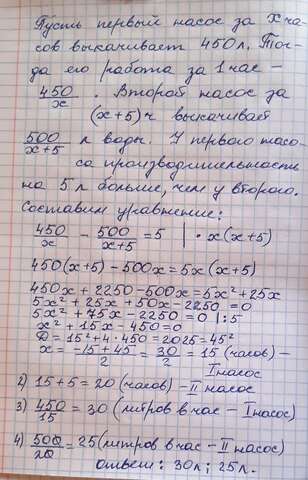 Пусть первый насос за x ча-
сов выкачивает 450 л. Тог-
да его работа за 1 час –
450/x . Второй насос за
(x+5) ч выкачивает
500/x+5 л воды. У первого насо-
са производительность
на 5 л больше, чем у второго.
Составим уравнение:
450/x - 500/x+5 = 5 | · x(x+5)
450(x+5) - 500x = 5x(x+5)
450x + 2250 - 500x = 5x² + 25x
5x² + 25x + 50x - 2250 = 0
5x² + 75x - 2250 = 0 | :5
x² + 15x - 450 = 0
D = 15² + 4 · 450 = 2025 = 45²
x = -15 + 45/2 = 30/2 = 15 (часов) –
I насос
2) 15 + 5 = 20 (часов) – II насос
3) 450/15 = 30 (литров в час – I насос)
4) 500/20 = 25 (литров в час – II насос)
ответ: 30 л; 25 л.